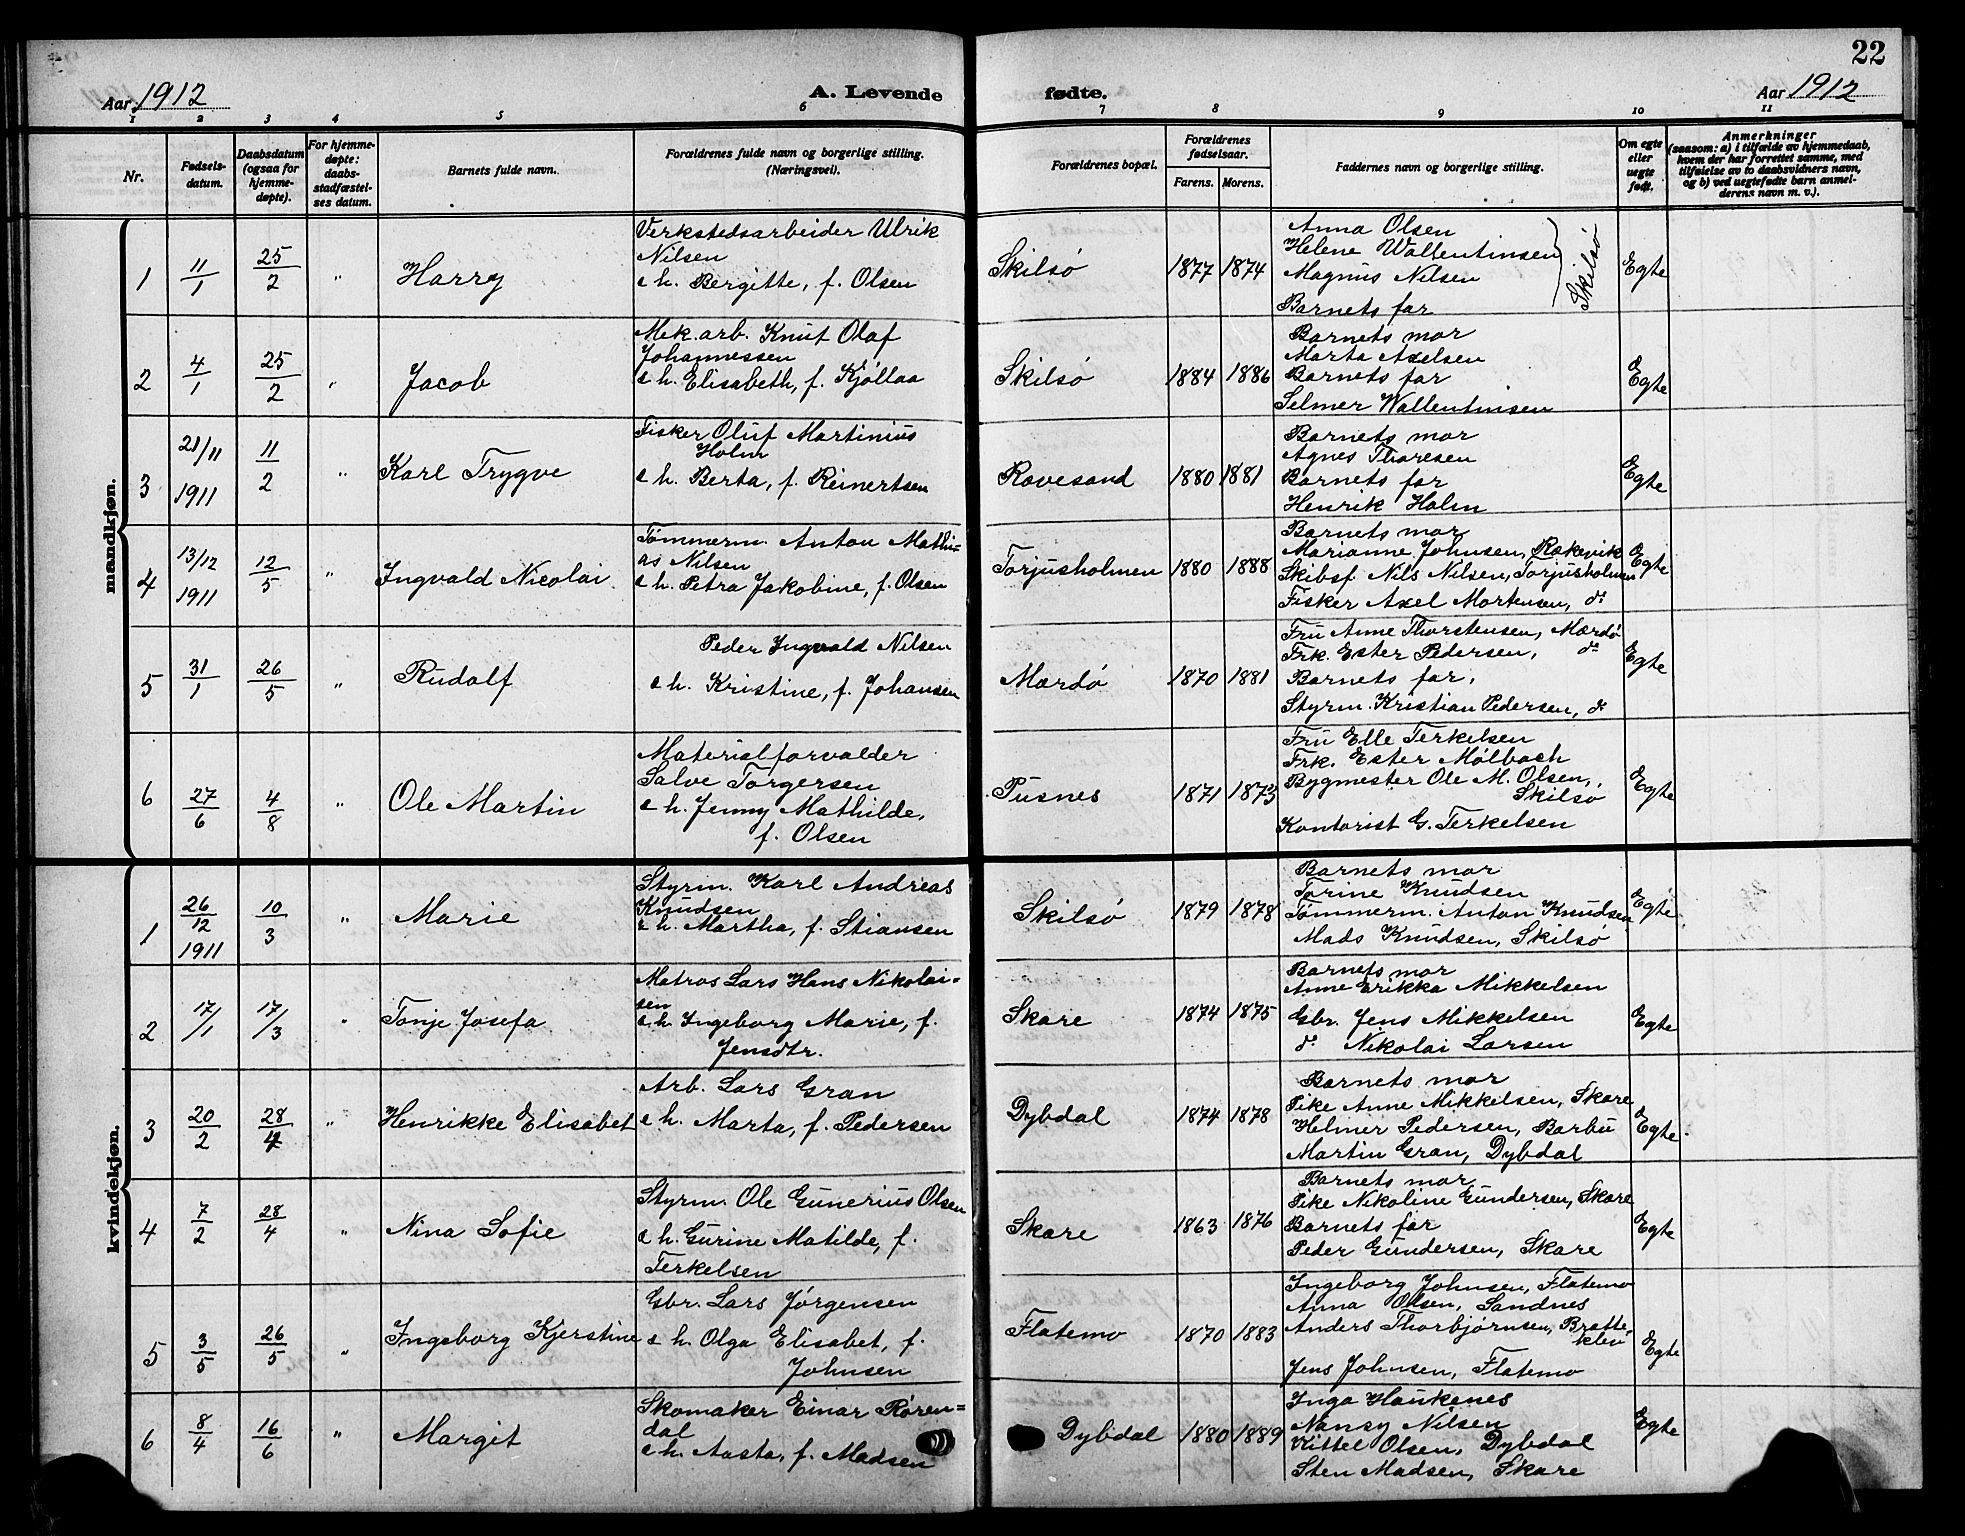 22
Aar 1912
A. Levende
fødte.
Aar 1912
1 2 3 4 5 6 7 8 9 10 11
Nr.
Fødsels-
datum.
Daabsdatum
(ogsaa for
hjemme-
døpte).
For hjemme-
døpte:
daabs-
stadfæstel-
ses datum.
Barnets fulde navn.
Forældrenes fulde navn og borgerlige stilling.
(Næringsvei).
Forældrenes bopæl.
Forældrenes
fødselsaar.
Farens. Morens.
Faddernes navn og borgerlige stilling.
Om egte
eller
uegte
født.
Anmerkninger
(saasom: a) i tilfælde av hjemmedaab,
hvem der har forrettet samme, med
tilføielse av to daabsvidners navn,
og b) ved uegtefødte barn anmel-
derens navn m. v.).
mandkjøn.
1
11/1
25/2
"
Harry
Verkstedsarbeider Ulrik
Nilsen
e h. Bergitte, f. Olsen
Skilsø
1877 1874
Anna Olsen
Helene Wallentinsen
Magnus Nilsen
Barnets far
Skilsø
Egte
2
4/1
25/2
"
Jacob
Mek. arb. Knut Olaf
Johannessen
e h. Elisabeth, f. Kjøllaa
Skilsø
1884 1886
Barnets mor
Marta Axelsen
Barnets far
Selmer Wallentinsen
Egte
3
21/11
1911
11/2
"
Karl Trygve
Fisker Oluf Martinius
Holm
e h. Berta, f. Reinertsen
Rovesand
1880 1881
Barnets mor
Agnes Thoresen
Barnets far
Henrik Holm
Egte
4
13/12
1911
12/5
"
Ingvald Nicolai
Tømmerm. Anton Mathi=
as Nilsen
e h. Petra Jakobine, f. Olsen
Torjusholmen
1880 1888
Barnets mor
Marianne Johnsen, Rækevik
Skibsf. Nils Nilsen, Torjusholmen
Fisker Axel Mortensen, do
Egte
5
31/1
26/5
"
Rudolf
Peder Ingvald Nilsen
e h. Kristine, f. Johansen
Mærdø
1870 1881
Fru Anne Thorstensen, Mærdø
Frk. Ester Pedersen, do
Barnets far,
Styrm. Kristian Pedersen, do
Egte
6
27/6
4/8
"
Ole Martin
Materialforvalder
Salve Torgersen
e h. Jenny Mathilde,
f. Olsen
Pusnes
1871 1873
Fru Elle Terkelsen
Frk. Ester Mølbach
Bygmester Ole M. Olsen,
Skilsø
Kontorist G. Terkelsen
Egte
kvindekjøn.
1
26/12
1911
10/3
"
Marie
Styrm. Karl Andreas
Knudsen
e h. Martha, f. Stiansen
Skilsø
1879 1878
Barnets mor
Torine Knudsen
Tømmerm. Anton Knudsen
Mads Knudsen, Skilsø
Egte
2
17/1
17/3
"
Tonje Josefa
Matros Lars Hans Nikolai=
sen
e h. Ingeborg Marie, f.
Jensdtr.
Skare
1874 1875
Barnets mor
Anne Erikka Mikkelsen
Gbr. Jens Mikkelsen
do Nikolai Larsen
Egte
3
20/2
28/4
"
Henrikke Elisabet
Arb. Lars Gran
e h. Marta, f. Pedersen
Dybdal
1874 1878
Barnets mor
Pike Anne Mikkelsen, Skare
Helmer Pedersen, Barbu
Martin Gran, Dybdal
Egte.
4
7/2
28/4
"
Nina Sofie
Styrm. Ole Gunerius Olsen
e h. Gurine Matilde, f.
Terkelsen
Skare
1863 1876
Barnets mor
Pike Nikoline Gundersen, Skare
Barnets far
Peder Gundersen, Skare
Egte
5
3/5
26/5
"
Ingeborg Kjerstine
Gbr. Lars Jørgensen
e h. Olga Elisabet, f.
Johnsen
Flatemo
1870 1883
Ingeborg Johnsen, Flatemo
Anna Olsen, Sandnes
Anders Thorbjørnsen, Bratte-
klev
Jens Johnsen, Flatemo
Egte
6
8/4
16/6
"
Margit
Skomaker Einar Røren=
dal
e h. Aasta, f. Madsen
Dybdal
1880 1889
Inga Haukenes
Nansy Nilsen
Kittel Olsen, Dybdal
Sten Madsen, Skare
Egte